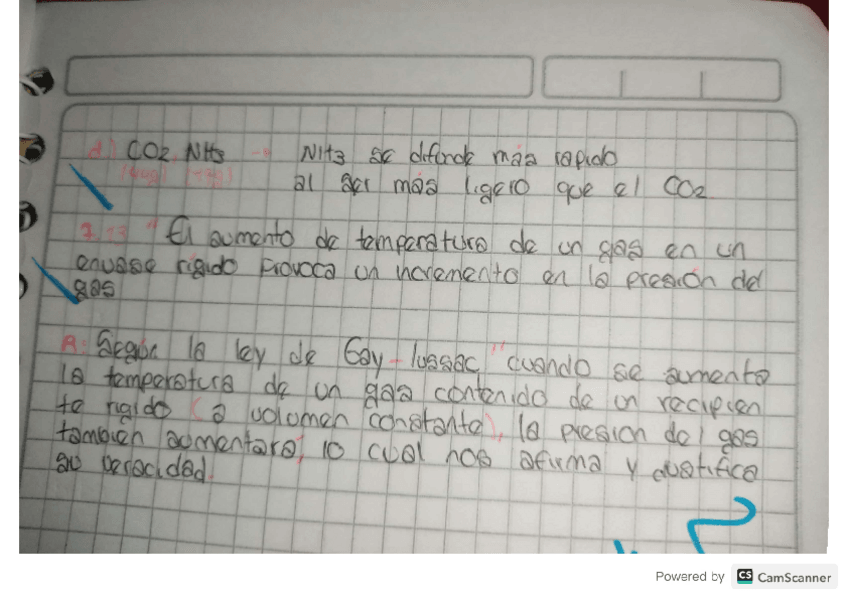 d) CO2, NH3 → NH3 se difunde más rapido
al ser más ligero que el CO2
7.13 "El aumento de temperatura de un gas en un
envase rigido provoca un incremento en la presión del
gas
R: Según la ley de Gay-lussac "cuando se aumenta
la temperatura de un gas contenido de un recipien
te rigido (a volumen constante), la presion del gas
tambien aumentara, lo cual nos afirma y
su veracidad.
Powered by CS CamScanner